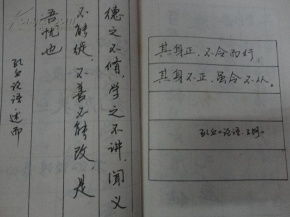 德之不修,学之不讲,闻义
不能徙,不善不能改,是
吾忧也
孔丘论语·述而
其身正,不令而行,
其身不正,虽令不从。
孔丘《论语·子路》